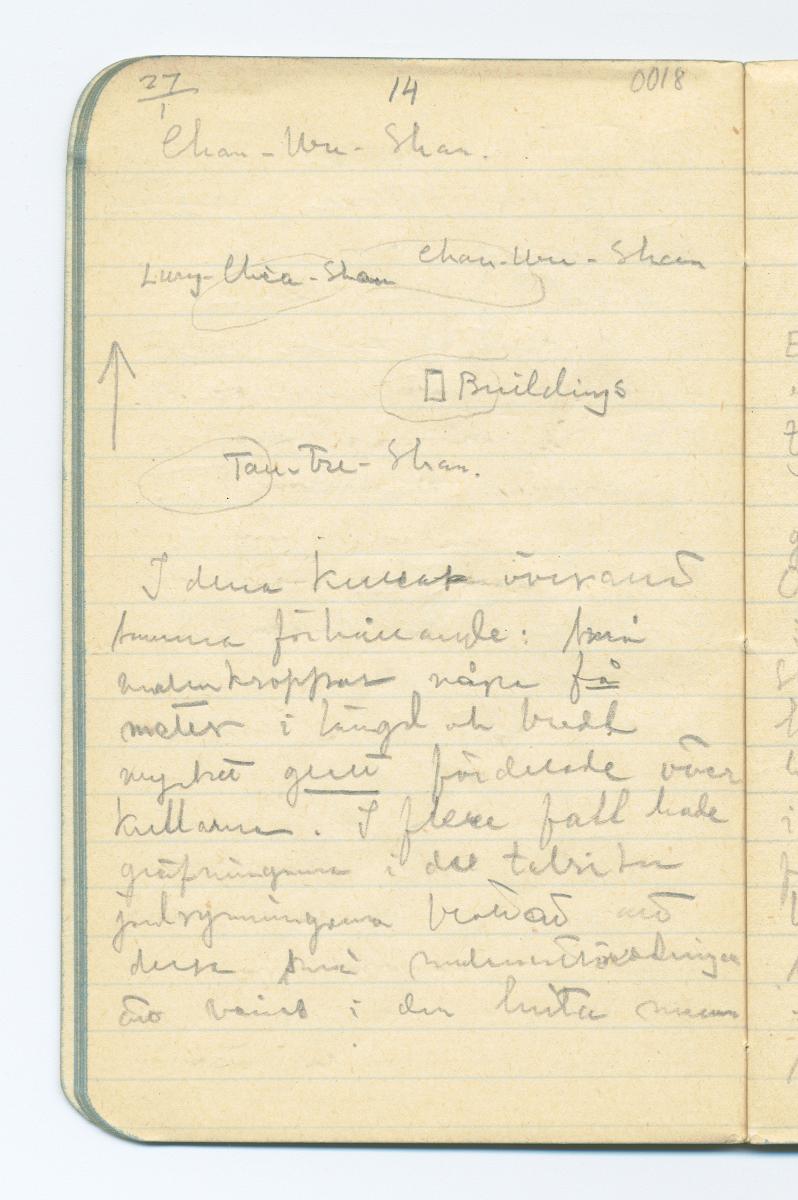 27/1 14 0018
Chan-Wu-Shan.
Lung-Chia-Shan Chan-Wu-Shan
Buildings
Tau-Tze-Shan.
I dessa överallt
samma förhållande: små
malmkroppar några få
meter i längd och bredd
mycket glest fördelade över
kullarna. I flera fall hade
gräfningarna i de talrika
jordrymningarna
dessa små
i den hvita